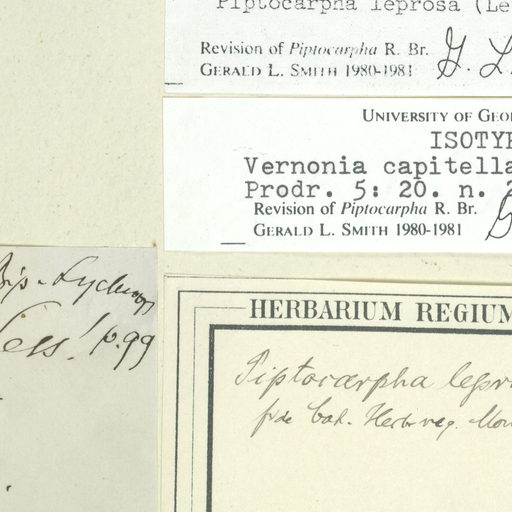 Piptocarpha leprosa (Le
Revision of Piptocarpha R. Br.
GERALD L. SMITH 1980-1981
G. L.
UNIVERSITY OF GEO
ISOTYP
Vernonia capitella
Prodr. 5: 20. n. 2
Revision of Piptocarpha R. Br.
GERALD L. SMITH 1980-1981
Less! p. 99
HERBARIUM REGIUM
Piptocarpha lepr
fide Cat. Herb. reg. Mon